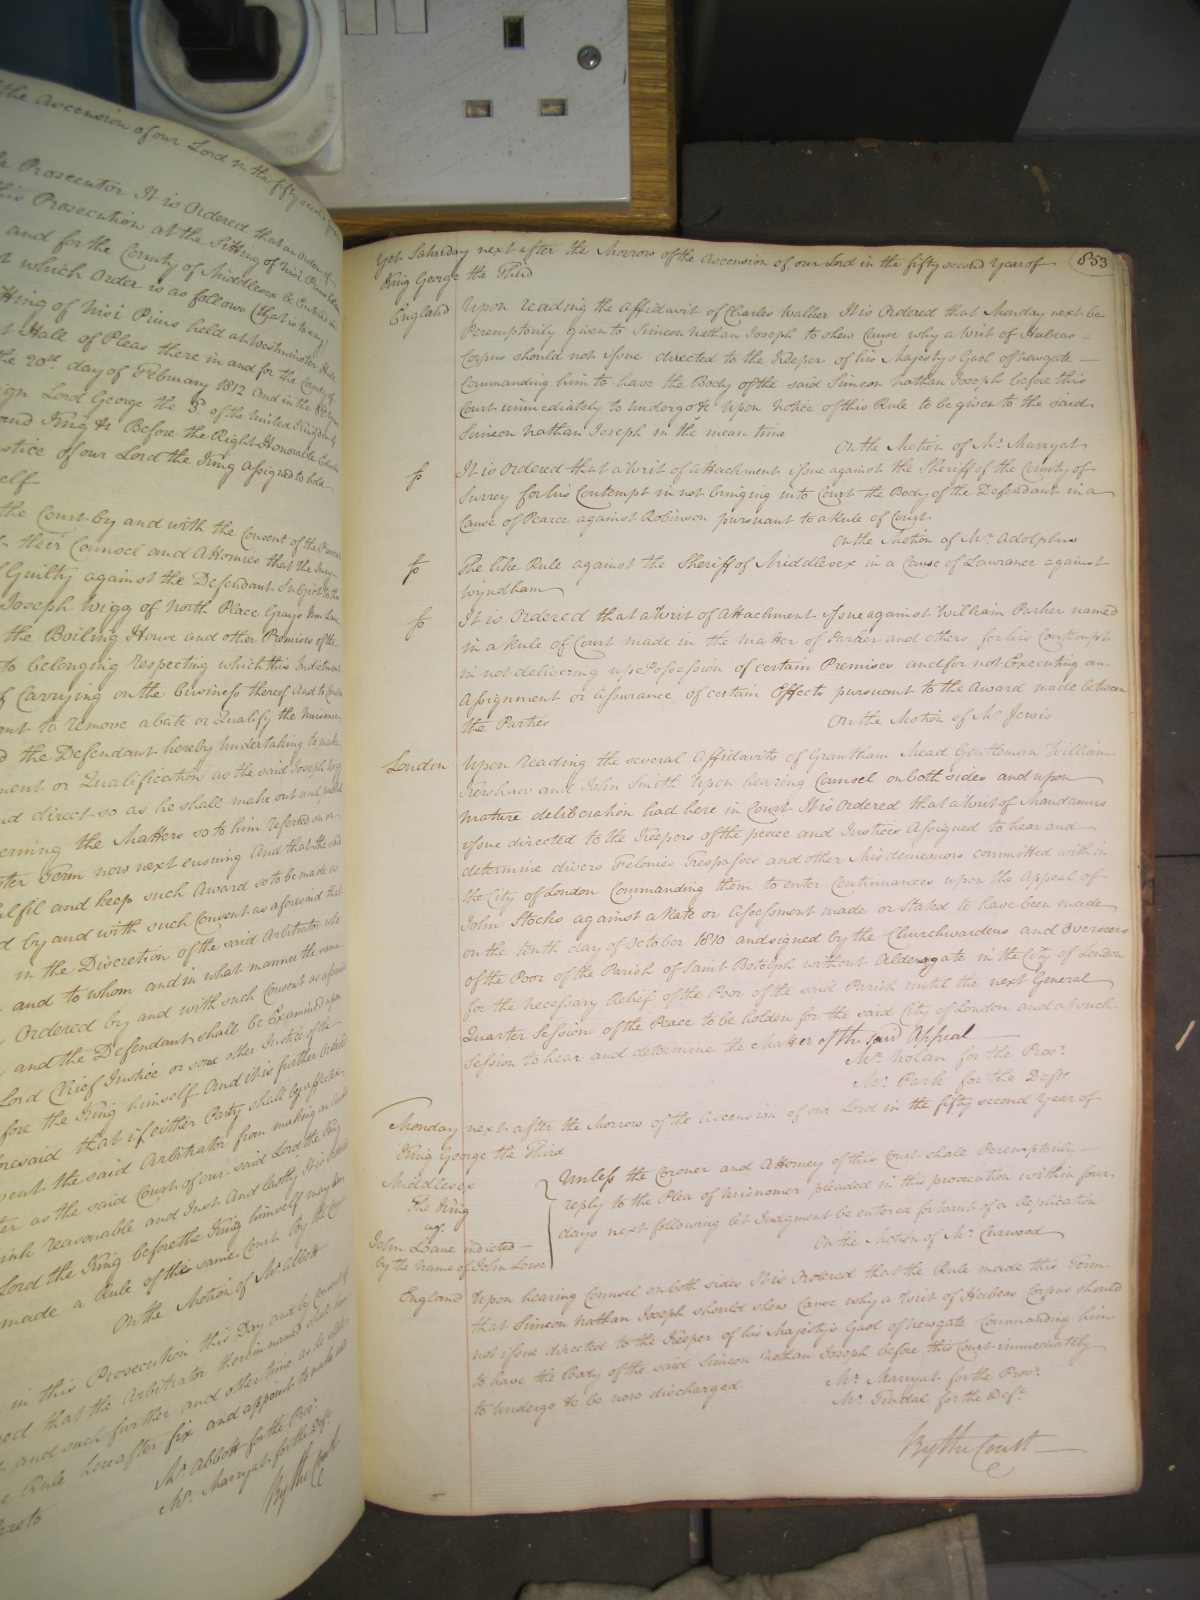 the Ascension of our Lord in the fifty second year
Prosecutor It is Ordered that an Order of
his Prosecution at the Sitting of Nisi Prius
and for the County of Middlesex be Entered
which Order is as follows (that is to say)
Sitting of Nisi Prius held at Westminster
Hall of Pleas there in and for the County of
the 20th day of February 1812 And in the
Lord George the 3d of the United Kingdom
and King &c Before the Right Honorable
Justice of our Lord the King assigned to hold
self
the Court by and with the Consent of the
their Counsel and Attornies that the Jury
Guilty against the Defendant Subject to the
Joseph Wigg of North Place Grays Inn Lane
the Boiling House and other Premises of the
to belonging respecting which this Indictment
of Carrying on the business thereof And to
to remove abate or Qualify the Nuisance
the Defendant hereby Undertaking to make
or Qualification as the said Joseph Wigg
and direct so as he shall make out and publish
the Matters so to him referred on or
Term now next ensuing And that the said
fulfil and keep such Award so to be made as
by and with such Consent as aforesaid that
in the Discretion of the said Arbitrator who
and to whom and in what manner the same
Ordered by and with such Consent as aforesaid
and the Defendant shall be Examined upon
Lord Chief Justice or some other Justice of the
before the King himself And it is further Ordered
aforesaid that if either Party shall by affected
the said Arbitrator from making an Award
as the said Court of our said Lord the King
think reasonable and Just And lastly it is
Lord the King before the King himself may be
made a Rule of the same Court By the Court
On the Motion of Mr. Abbott
in this Prosecution this Day and by Consent of
that the Arbitrator therein named shall have
and such further and other time as he
Rule hereafter fix and appoint to make
Mr. Abbott for the Pros:
Mr. Marryat for the Deft.
By the Court
853
Yet Saturday next after the Morrow of the Ascension of our Lord in the fifty second Year of
King George the Third
England Upon reading the Affidavit of Charles Walker It is Ordered that Monday next be
Peremptorily given to Simeon Nathan Joseph to shew Cause why a Writ of Habeas
Corpus should not issue directed to the Keeper of his Majestys Gaol of Newgate
Commanding him to have the Body of the said Simeon Nathan Joseph before this
Court immediately to undergo &c Upon Notice of this Rule to be given to the said
Simeon Nathan Joseph in the mean time
On the Motion of Mr. Marryat
It is Ordered that a Writ of Attachment issue against the Sheriff of the County of
Surrey for his Contempt in not bringing into Court the Body of the Defendant in a
Cause of Pearce against Robinson pursuant to a Rule of Court
On the Motion of Mr. Adolphus
The like Rule against the Sheriff of Middlesex in a Cause of Lawrance against
Wyndham
It is Ordered that a Writ of Attachment issue against William Parker named
in a Rule of Court made in the Matter of Parker and others for his Contempt
in not delivering up Possession of certain Premises and for not Executing an
Assignment or Assurance of certain Effects pursuant to the Award made between
the Parties
On the Motion of Mr. Jervis
London Upon reading the several Affidavits of Grantham Mead Gentleman William
Kershaw and John Smith Upon hearing Counsel on both sides and upon
mature deliberation had here in Court It is Ordered that a Writ of Mandamus
issue directed to the Keepers of the peace and Justices Assigned to hear and
determine divers Felonies Trespasses and other Misdemeanors committed with in
the City of London Commanding them to enter Continuances upon the Appeal of
John Stocks against a Rate or Assessment made or Stated to have been made
on the tenth day of October 1810 and signed by the Churchwardens and Overseers
of the Poor of the Parish of Saint Botolph without Aldersgate in the City of London
for the necessary Relief of the Poor of the said Parish until the next General
Quarter Session of the Peace to be holden for the said City of London and at such
Session to hear and determine the Matter of the said Appeal
Mr. Nolan for the Pros:
Mr. Park for the Deft.
Monday next after the Morrow of the Ascension of our Lord in the fifty second Year of
King George the Third
Middlesex
The King
agt.
John Lane indicted
by the name of John Lowe
Unless the Coroner and Attorney of this Court shall Peremptorily
reply to the Plea of Misnomer pleaded in this prosecution within four
days next following let Judgment be entered for want of a Replication
On the Motion of Mr. Curwood
England Upon hearing Counsel on both sides It is Ordered that the Rule made this Term
that Simeon Nathan Joseph should shew Cause why a Writ of Habeas Corpus should
not issue directed to the Keeper of his Majestys Gaol of Newgate Commanding him
to have the Body of the said Simeon Nathan Joseph before this Court immediately
to Undergo &c be now discharged
Mr. Marryat for the Pros:
Mr. Tindal for the Deft.
By the Court